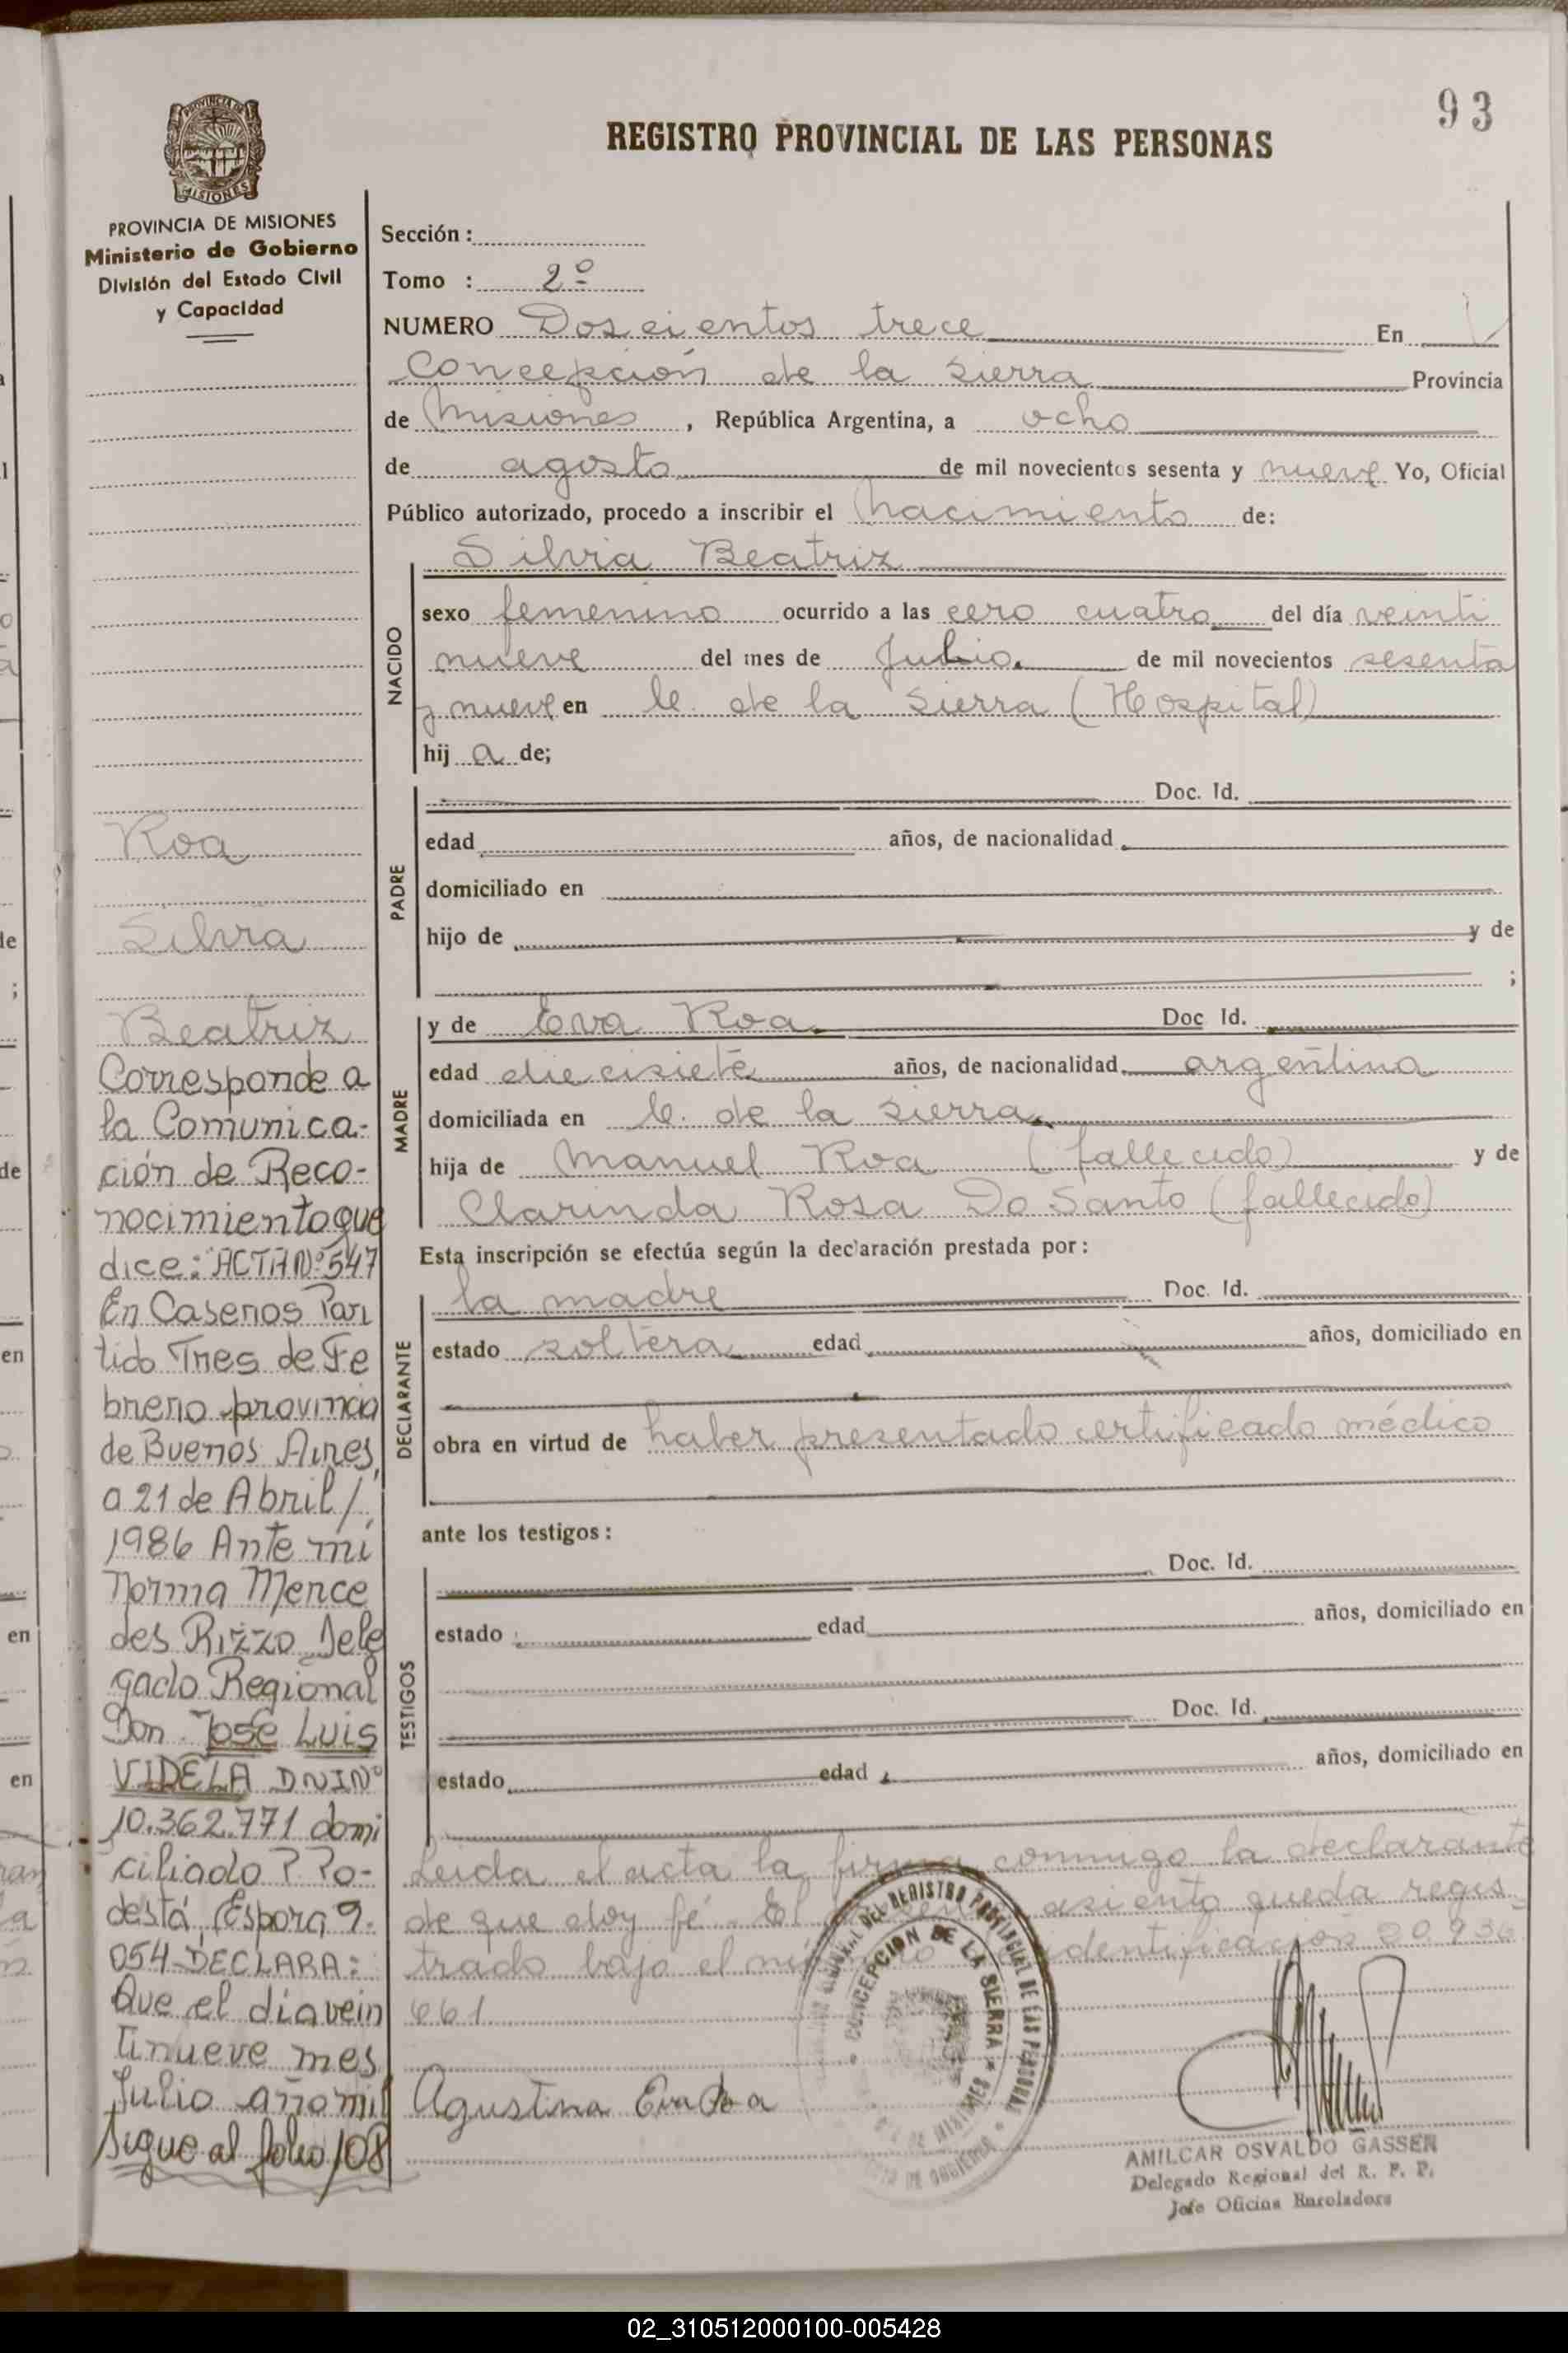 93
REGISTRO PROVINCIAL DE LAS PERSONAS
PROVINCIA DE
MISIONES
PROVINCIA DE MISIONES
Ministerio de Gobierno
División del Estado Civil
y Capacidad
Roa
Silvia
Beatriz
Corresponde a
la Comunica-
ción de Reco-
nocimiento que
dice: "ACTA Nº 547
En Caseros Par
tido Tres de Fe
brero provincia
de Buenos Aires,
a 21 de Abril/
1986 Ante mí
Norma Merce
des Rizzo Dele
gado Regional
Don José Luis
VIDELA DNI Nº
10.362.771 domi
ciliado P. Po-
destá, Espora 9.
054-DECLARA:
Que el día vein
tinueve mes
Julio año mil
Sigue al folio 108
Sección :
Tomo : 2º
NUMERO Doscientos trece En
Concepción de la Sierra Provincia
de Misiones, República Argentina, a ocho
de agosto de mil novecientos sesenta y nueve Yo, Oficial
Público autorizado, procedo a inscribir el nacimiento de:
NACIDO
Silvia Beatriz
sexo femenino ocurrido a las cero cuatro del día veinti
nueve del mes de Julio. de mil novecientos sesenta
y nueve en C. de la Sierra (Hospital)
hij a de;
PADRE
Doc. Id.
edad años, de nacionalidad
domiciliado en
hijo de y de
;
MADRE
y de Eva Roa Doc Id.
edad diecisiete años, de nacionalidad argentina
domiciliada en C. de la Sierra
hija de Manuel Roa (fallecido) y de
Clarinda Rosa Do Santo (fallecido)
Esta inscripción se efectúa según la declaración prestada por:
DECLARANTE
la madre Doc. Id.
estado soltera edad años, domiciliado en
obra en virtud de haber presentado certificado médico
ante los testigos:
TESTIGOS
Doc. Id.
estado edad años, domiciliado en
Doc. Id.
estado edad años, domiciliado en
Leida el acta la firma conmigo la declarante
de que doy fé. El asiento queda regis
trado bajo el identificación 20.936
661
Agustina Eva Roa
DEL REGISTRO PROVINCIAL DE LAS PERSONAS
CONCEPCION DE LA SIERRA
AMILCAR OSVALDO GASSEN
Delegado Regional del R. P. P.
Jefe Oficina Enroladora
02_310512000100-005428